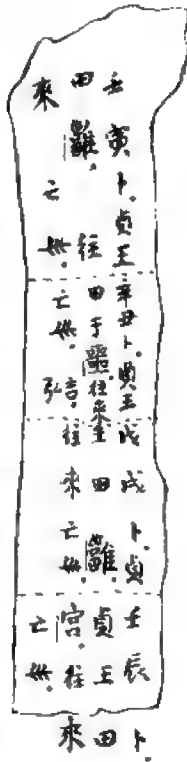 壬寅卜.貞王
田雝.往
來亡𡿧.
辛丑卜.貞王
田于噩.往來
亡𡿧.弘吉.
戊戌卜.貞
王田雝.
往來亡𡿧.
壬辰卜
貞王田
宮.往來
亡𡿧.